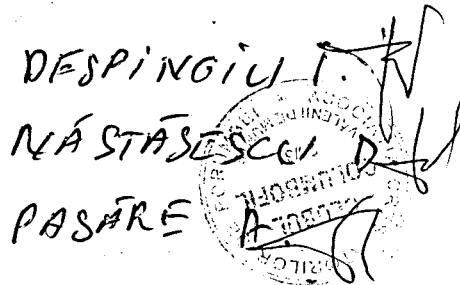 DESPINGIU I.
NĂSTĂSESCU D.
PASĂRE A.
CLUBUL
COLUMBOFIL